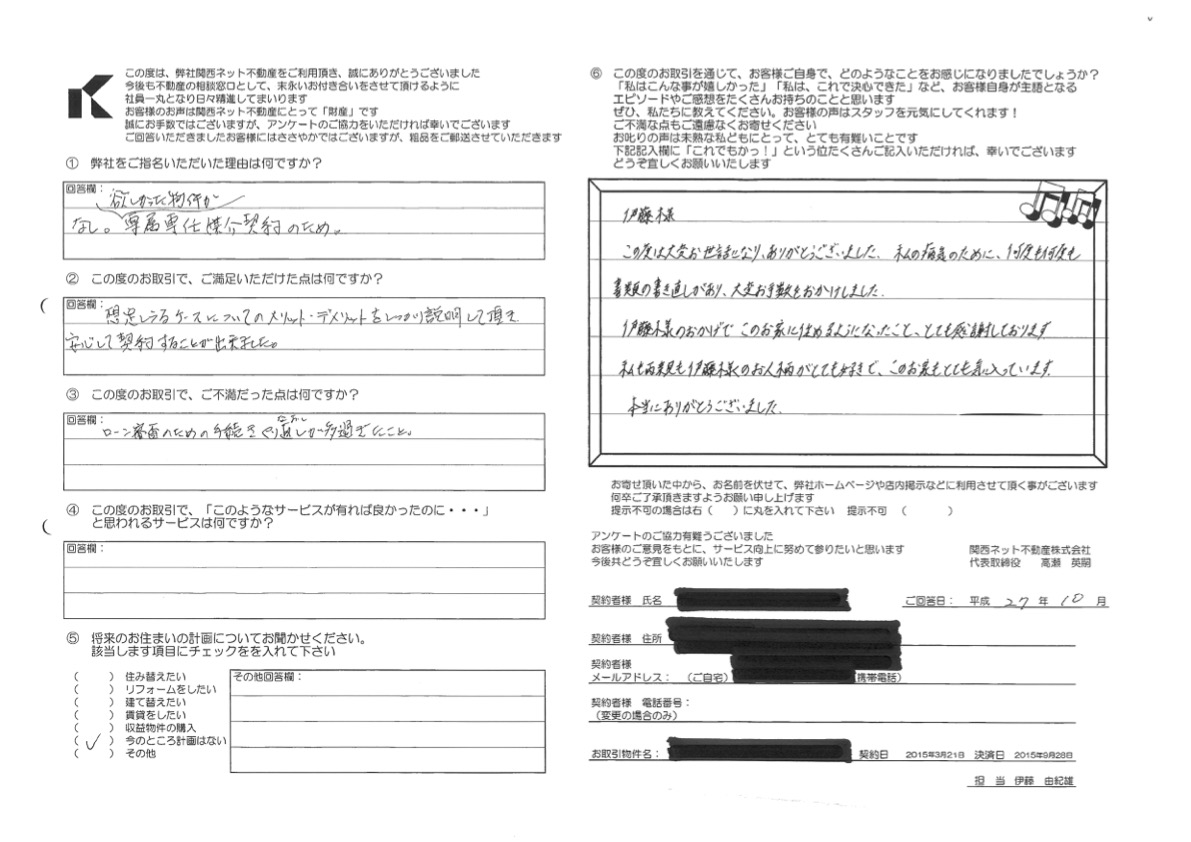 この度は、弊社関西ネット不動産をご利用頂き、誠にありがとうございました
今後も不動産の相談窓口として、末永いお付き合いをさせて頂けるように
社員一丸となり日々精進してまいります
お客様のお声は関西ネット不動産にとって「財産」です
誠にお手数ではございますが、アンケートのご協力をいただければ幸いでございます
ご回答いただきましたお客様にはささやかではございますが、粗品をご郵送させていただきます
① 弊社をご指名いただいた理由は何ですか？
回答欄：
欲しかった物件が
なし。専属専任媒介契約のため。
② この度のお取引で、ご満足いただけた点は何ですか？
回答欄：
想定しうるケースについてのメリット・デメリットをしっかり説明して頂き
安心して契約することが出来ました。
③ この度のお取引で、ご不満だった点は何ですか？
回答欄：
ローン審査のための手続きくり返しが多過ぎたこと。
④ この度のお取引で、「このようなサービスが有れば良かったのに・・・」
と思われるサービスは何ですか？
回答欄：
⑤ 将来のお住まいの計画についてお聞かせください。
該当します項目にチェックをを入れて下さい
（　　） 住み替えたい
（　　） リフォームをしたい
（　　） 建て替えたい
（　　） 賃貸をしたい
（　　） 収益物件の購入
（ ✓ ） 今のところ計画はない
（　　） その他
その他回答欄：
⑥ この度のお取引を通じて、お客様ご自身で、どのようなことをお感じになりましたでしょうか？
「私はこんな事が嬉しかった」「私は、これで決心できた」など、お客様自身が主語となる
エピソードやご感想をたくさんお持ちのことと思います
ぜひ、私たちに教えてください。お客様の声はスタッフを元気にしてくれます！
ご不満な点もご遠慮なくお寄せください
お叱りの声は未熟な私どもにとって、とても有難いことです
下記記入欄に「これでもかっ！」という位たくさんご記入いただければ、幸いでございます
どうぞ宜しくお願いいたします
伊藤様
この度は大変お世話になり、ありがとうございました。私の病気のために、何度も何度も
書類の書き直しがあり、大変お手数をおかけしました。
伊藤様のおかげでこのお家に住めるようになったこと、とても感謝しております
私も両親も伊藤様のお人柄がとても好きで、このお家もとても気に入っています。
本当にありがとうございました。
お寄せ頂いた中から、お名前を伏せて、弊社ホームページや店内掲示などに利用させて頂く事がございます
何卒ご了承頂きますようお願い申し上げます
提示不可の場合は右（　）に丸を入れて下さい　提示不可　（　　　）
アンケートのご協力有難うございました
お客様のご意見をもとに、サービス向上に努めて参りたいと思います
今後共どうぞ宜しくお願いいたします
関西ネット不動産株式会社
代表取締役　高瀬　英明
契約者様 氏名
ご回答日： 平成 27 年 10 月
契約者様 住所
契約者様
メールアドレス： （ご自宅）　携帯電話）
契約者様 電話番号：
（変更の場合のみ）
お取引物件名：
契約日 2015年3月21日 決済日 2015年9月28日
担 当 伊藤 由紀雄